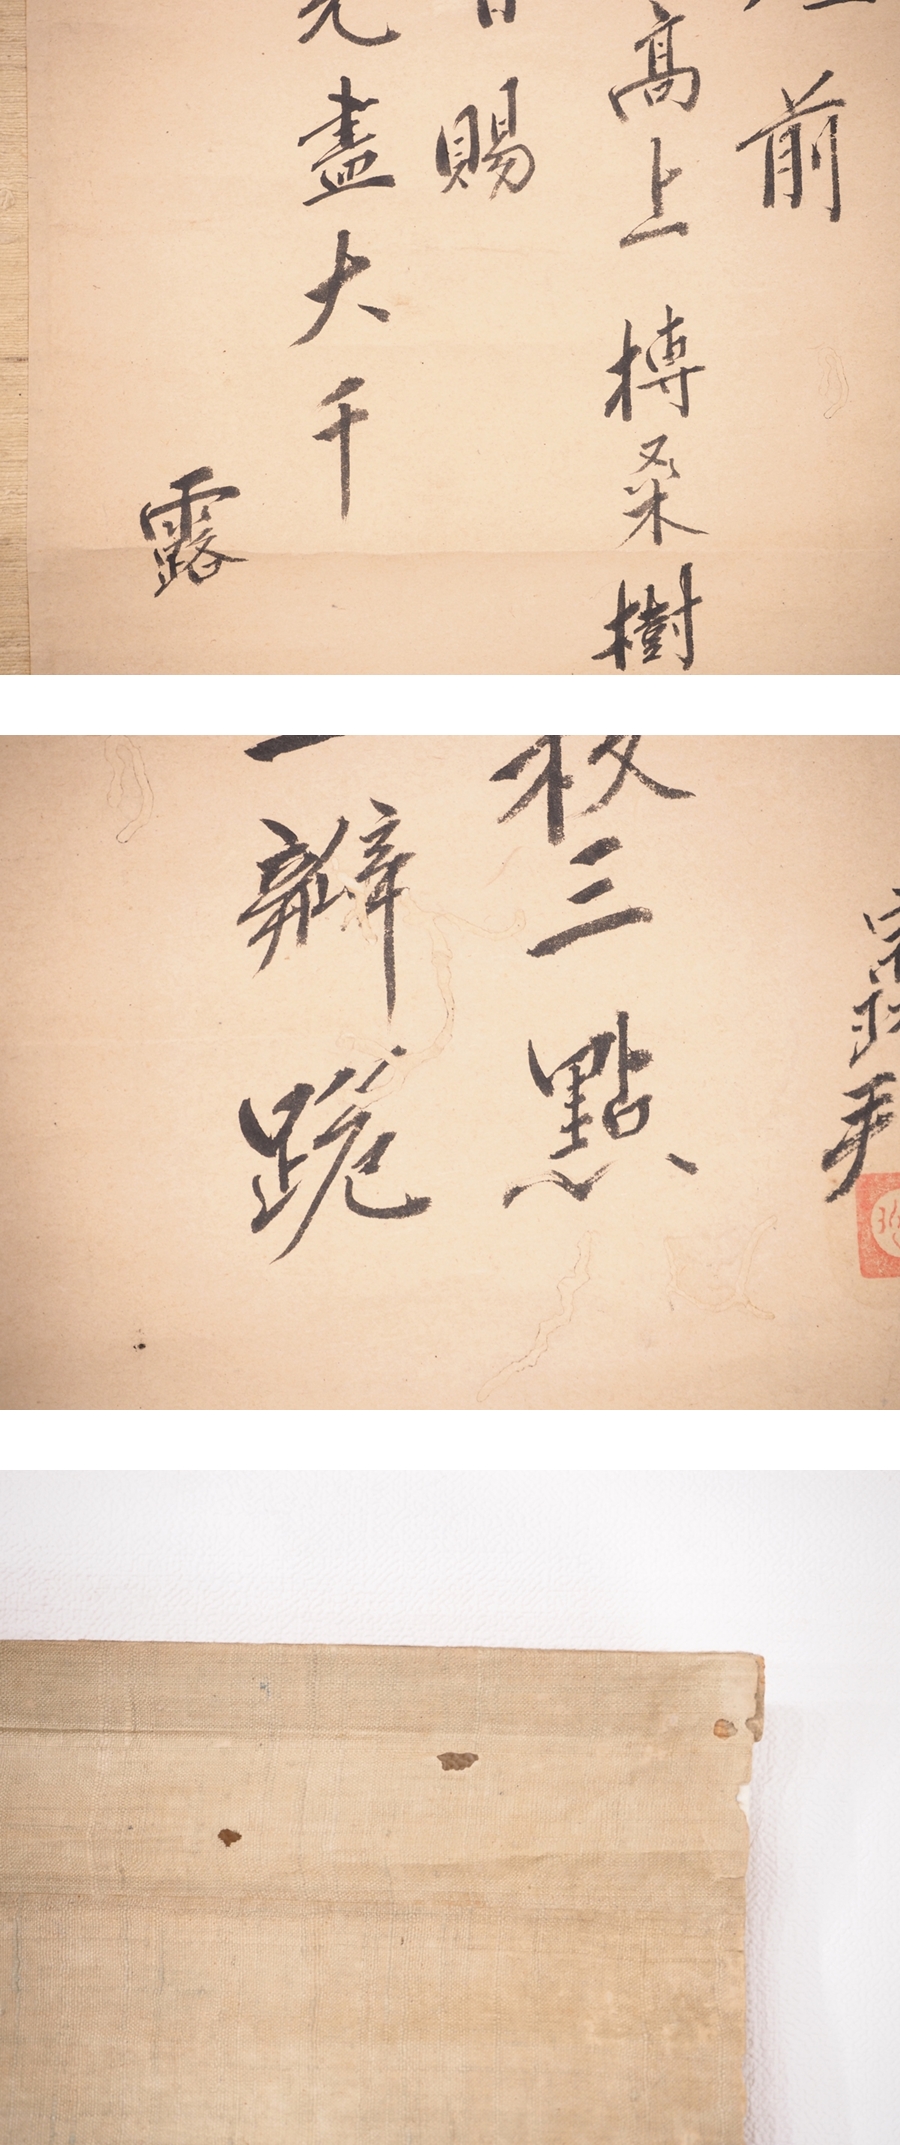 前
高上榑桑樹
賜
光盡大千
露
三點
一瓣跪
手